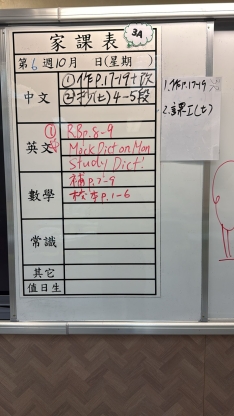 家課表
3A
第6週10月 日(星期 )
中文
①作P.17-19+改
②抄(七)4-5段
英文
① RBp.8-9
Mock Dict on Mon
Study Dict!
數學
補P.7-9
P.1-6
常識
其它
值日生
1.作P.17-19
2.課工(七)